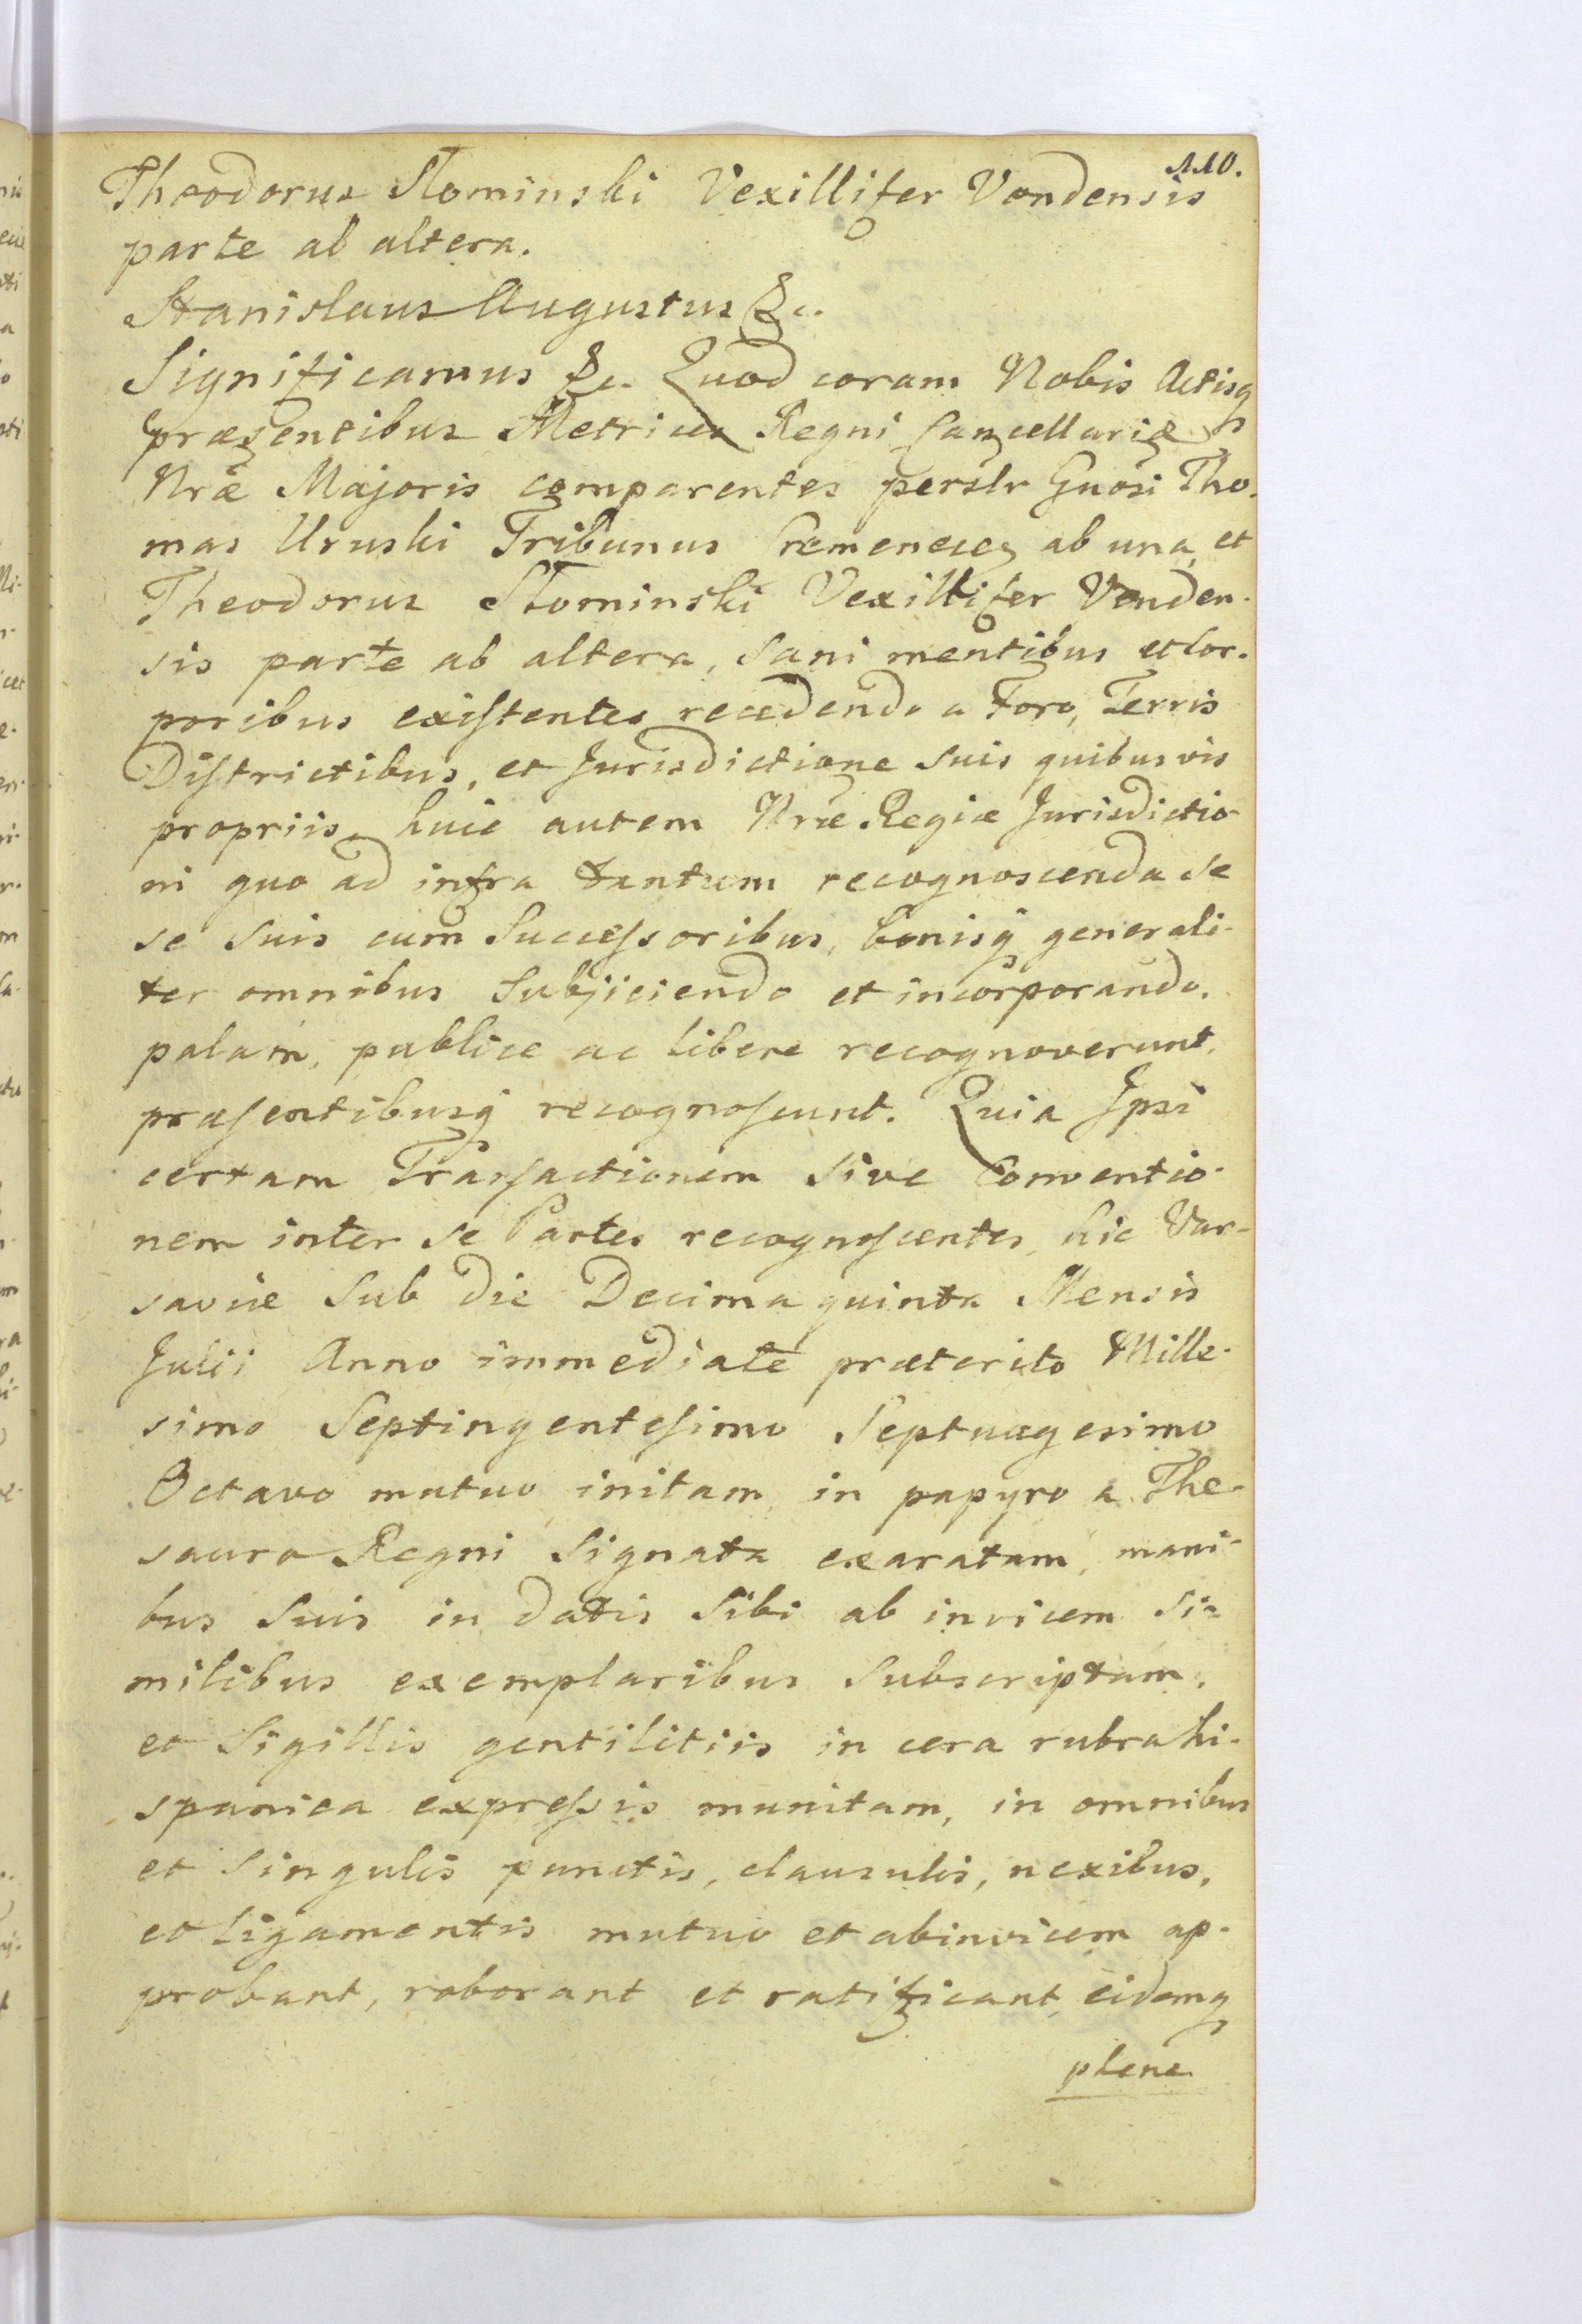 110.
Theodorus Słominski Vexillifer Vendensis
parte ab altera.
Stanislaus Augustus &c.
Significamus &c. Quod coram Nobis Actisq
præsentibus Metrices Regni Cancellariæ
Nræ Majoris comparentes perslr Gnosi Tho-
mas Uruski Tribunus Cremeneceṅ ab una, et
Theodorus Słominski Vexillifer Venden-
sis parte ab altera, Sani mentibus et Cor-
poribus existentes recedendo a Foro, Terris
Districtibus, et Jurisdictione Suis quibusvis
propriis, huic autem Nræ Regiæ Jurisdictio-
ni quo ad infra tantum recognoscenda se
se Suis cum Successoribus, bonisq generali-
ter omnibus Subjiciendo et incorporando,
palam, publice ac libere recognoverunt,
præsentibusq recognoscunt. Quia Ipsi
certam Transactionem Sive Conventio-
nem inter se Partes recognoscentes, hic Var-
saviæ Sub die Decima quinta Mensis
Julii Anno immediatè præterito Mille-
simo Septingentesimo Septuagesimo
Octavo mutuo initam, in papyro a The-
sauro Regni Signata exaratam, mani-
bus Suis in datis Sibi ab invicem Si-
milibus exemplaribus Subscriptam,
et Sigillis gentilitiis in cera rubra hi-
spanica expressis munitam, in omnibus
et Singulis punctis, clausulis, nexibus,
et ligamentis mutuo et abinvicem ap-
probant, roborant et ratificant, eidemq
plene